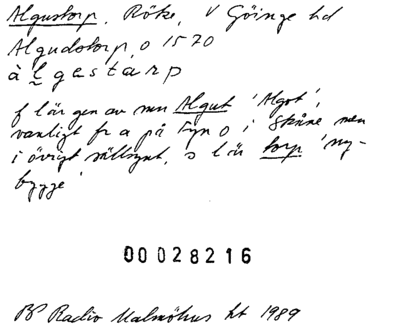 Algustorp, Röke, V Göinge hd
Algudstorp, o 1570
à l̰gastarp
f lär gen av mn Algut 'Algot',
vanligt fr a på Fyn o i Skåne men
i övrigt sällsynt, s lär torp 'ny-
bygge'
00028216
BP Radio Malmöhus ht 1989